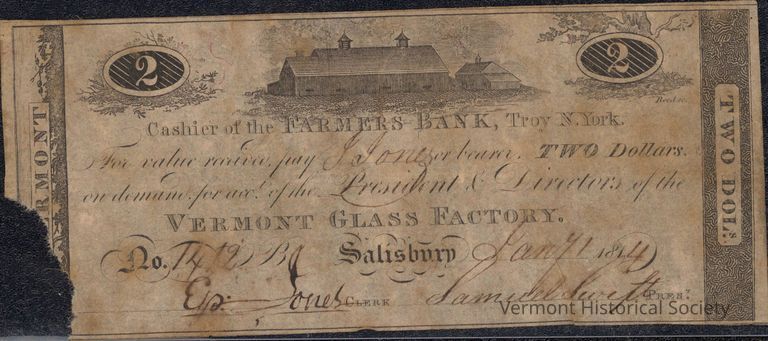 2
2
Reed sc.
Cashier of the FARMERS BANK, Troy N. York.
For value received, pay J Jones or bearer, TWO Dollars.
on demand, for acct. of the President & Directors of the
VERMONT GLASS FACTORY.
No. 1412 Salisbury Jany 1 1814
Ep: Jones CLERK Samuel Swift PRENT.
RMONT
TWO DOLS.
Vermont Historical Society